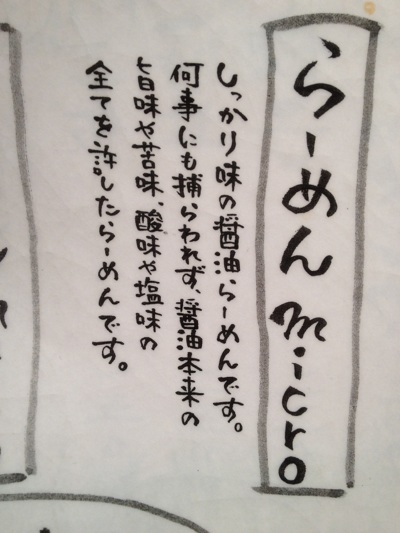 らーめんmicro
しっかり味の醤油らーめんです。
何事にも捕らわれず、醤油本来の
旨味や苦味、酸味や塩味の
全てを許したらーめんです。